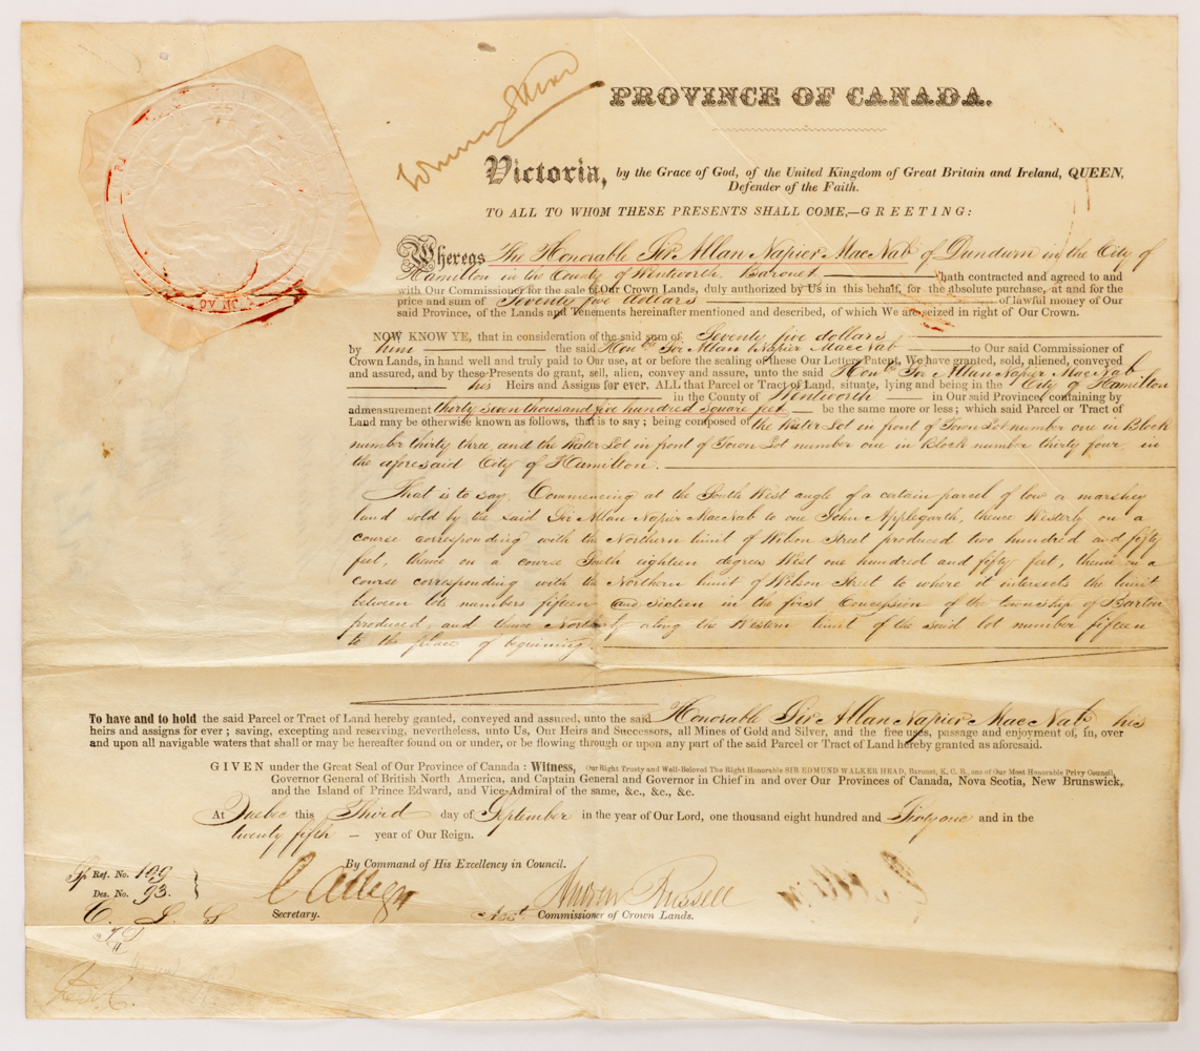 PROVINCE OF CANADA.
Victoria, by the Grace of God, of the United Kingdom of Great Britain and Ireland, QUEEN,
Defender of the Faith.
TO ALL TO WHOM THESE PRESENTS SHALL COME,—GREETING:
Whereas The Honorable Sir Allan Napier MacNab of Dundurn in the City of
Hamilton in the County of Wentworth, Baronet hath contracted and agreed to and
with Our Commissioner for the sale of Our Crown Lands, duly authorized by Us in this behalf, for the absolute purchase, at and for the
price and sum of Seventy five dollars of lawful money of Our
said Province, of the Lands and Tenements hereinafter mentioned and described, of which We are seized in right of Our Crown.
NOW KNOW YE, that in consideration of the said sum of Seventy five dollars
by him the said Honble Sir Allan Napier MacNab to Our said Commissioner of
Crown Lands, in hand well and truly paid to Our use, at or before the sealing of these Our Letters Patent, We have granted, sold, aliened, conveyed
and assured, and by these Presents do grant, sell, alien, convey and assure, unto the said Honble Sir Allan Napier MacNab
his Heirs and Assigns for ever, ALL that Parcel or Tract of Land, situate, lying and being in the City of Hamilton
in the County of Wentworth in Our said Province, containing by
admeasurement thirty seven thousand five hundred square feet be the same more or less; which said Parcel or Tract of
Land may be otherwise known as follows, that is to say; being composed of the Water Lot in front of Town Lot number one in Block
number thirty three, and the Water Lot in front of Town Lot number one in Block number thirty four, in
the aforesaid City of Hamilton.
That is to say, Commencing at the South West angle of a certain parcel of low a marshey
land sold by the said Sir Allan Napier MacNab to one John Applegarth, thence Westerly on a
course corresponding with the Northern limit of Wilson Street produced two hundred and fifty
feet, thence on a course South eighteen degrees West one hundred and fifty feet, thence on a
course corresponding with the Northern limit of Wilson Street to where it intersects the limit
between lots numbers fifteen and sixteen in the first Concession of the township of Barton
produced, and thence Northerly along the Western limit of the said lot number fifteen
to the place of beginning.
To have and to hold the said Parcel or Tract of Land hereby granted, conveyed and assured, unto the said Honorable Sir Allan Napier MacNab his
heirs and assigns for ever; saving, excepting and reserving, nevertheless, unto Us, Our Heirs and Successors, all Mines of Gold and Silver, and the free uses, passage and enjoyment of, in, over
and upon all navigable waters that shall or may be hereafter found on or under, or be flowing through or upon any part of the said Parcel or Tract of Land hereby granted as aforesaid.
GIVEN under the Great Seal of Our Province of Canada: Witness, Our Right Trusty and Well-Beloved The Right Honorable SIR EDMUND WALKER HEAD, Baronet, K. C. B., one of Our Most Honorable Privy Council,
Governor General of British North America, and Captain General and Governor in Chief in and over Our Provinces of Canada, Nova Scotia, New Brunswick,
and the Island of Prince Edward, and Vice-Admiral of the same, &c., &c., &c.
At Quebec this Third day of September in the year of Our Lord, one thousand eight hundred and Sixty one and in the
twenty fifth — year of Our Reign.
By Command of His Excellency in Council.
Ref. No. 109
Des. No. 93.
C Alleyn
Andrew Russell
Secretary.
Asst. Commissioner of Crown Lands.
C. L. S